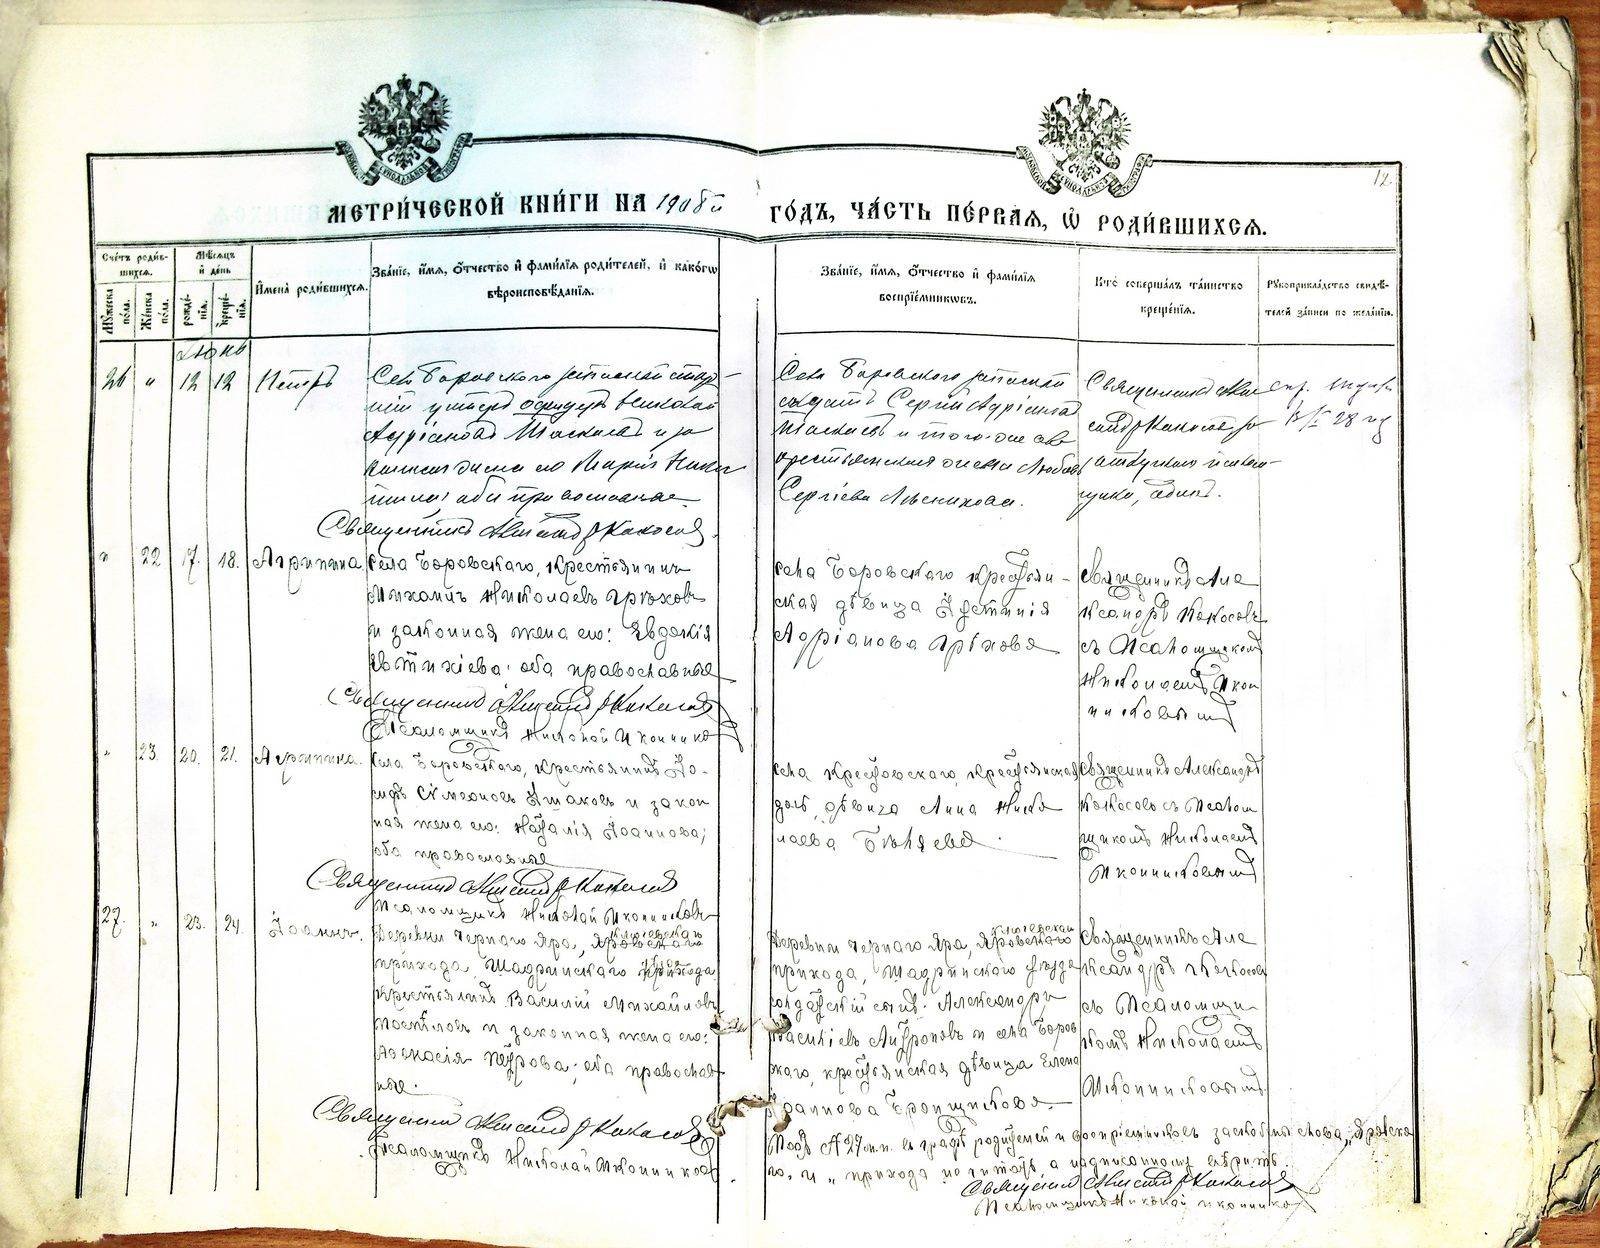 12
МЕТРИ́ЧЕСКОЙ КНИ́ГИ НА 1908й ГО́ДЪ, ЧА́СТЬ ПЕ́РВАЯ, Ѽ РОДИ́ВШИХСЯ.
Сче́тъ роди́вшихся.
Мѣ́сяцъ и҆ де́нь
Мꙋ́жеска по́ла.
Же́нска по́ла.
рожде́нїя.
креще́нїя.
И҆мена̀ роди́вшихся.
Зва́нїе, и҆́мя, ѻ҆́тчество и҆ фами́лїя роди́телей, и҆ како́гѡ
вѣроисповѣ́данїя.
Зва́нїе, и҆́мя, ѻ҆́тчество и҆ фами́лїя
воспрїе́мникѡвъ.
Кто̀ соверша́лъ та́инство
креще́нїя.
Рꙋкоприкла́дство свидѣ́-
телей за́писи по жела́нїю.
Іюнь
26 " 12 12 Петръ
Села Боровского запасной стар-
шій унтеръ офицеръ Николай
Адріановъ и за
конная жена его Марія
оба православные
Священникъ Александръ Кокосовъ.
Села Боровского запасной
солдатъ Сергій Адріановъ
и того-же се
крестьянская жена Любовь
Сергіева
Священникъ Алек
сандръ Кокосовъ за
28 г
" 22 17. 18. Агрипина
Села Боровского, крестьянинъ
Михаилъ Николаевъ Грѣховъ
и законная жена его: Евдокія
Евтихіева: оба православные
Священникъ Александръ Кокосовъ
Псаломщикъ Николай Иконнико
Села Боровского крестьян-
ская дѣвица Устинія
Адріанова Грѣхова
Священникъ Але
ксандръ Кокосовъ
съ Псаломщикомъ
Николаемъ Икон
никовымъ
" 23. 20. 21. Агрипина.
Села Боровского, крестьянинъ Іо-
сифъ Симеоновъ Ушаковъ и закон
ная жена его: Наталія Іоаннова;
оба православные
Священникъ Александръ Кокосовъ
Псаломщикъ Николай Иконниковъ
Села Крестовского, крестьянская
дѣвица Анна Нико
лаева Бѣляева
Священникъ Александръ
Кокосовъ съ Псалом
щикомъ Николаемъ
Иконниковымъ
27. " 23. 24. Іоаннъ.
Деревни Черного Яра, Яровского
прихода, Шадринскаго прихода
крестьянинъ Василій Михайловъ
Постѣловъ и законная жена его:
Афанасія Петрова; оба православ
ные.
Священникъ Александръ Кокосовъ
Псаломщикъ Николай Иконников
Деревни Черного Яра, Яровского
прихода, Шадринского уѣзда
солдатскій сынъ: Александръ
Василіевъ Антроповъ и села Боров
ского, крестьянская дѣвица Елена
Іоаннова Бронщикова.
Священникъ Але
ксандръ Кокосовъ
съ Псаломщи
комъ Николаемъ
Иконниковымъ
Подъ № 27 м.п. въ графѣ родителей и воспріемниковъ слова, „Яровска
го„ и „ прихода не читать, а надписанному вѣрить.
Священникъ Александръ Кокосовъ
Псаломщикъ Николай Иконников